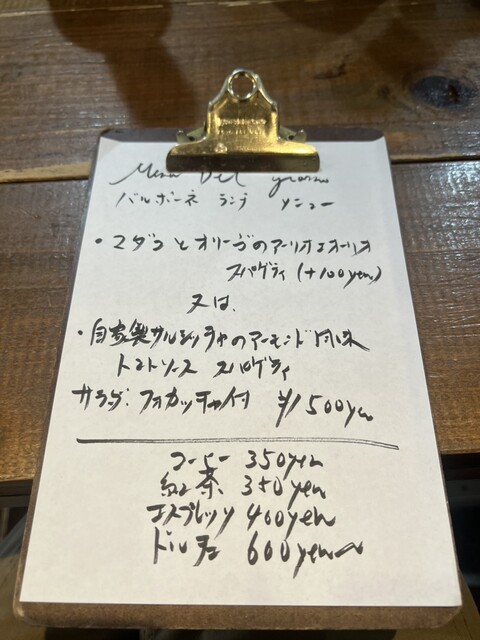 Menu Del giorno
バルボーネ ランチ メニュー
・マダコとオリーブのアーリオエオーリオ
スパゲティ (+100yen)
又は、
・自家製サルシッチャのアーモンド風味
トマトソース スパゲティ
サラダ、フォカッチャ付 ¥1500yen
コーヒー 350yen
紅茶 350yen
エスプレッソ 400yen
ドルチェ 600yen〜